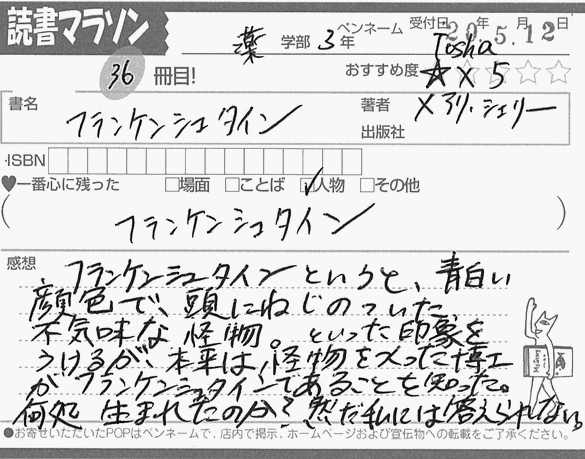 読書マラソン
薬 学部 3年
ペンネーム Tosha
受付日 20年5月12日
36 冊目!
おすすめ度 ★×5 ☆☆☆☆
書名 フランケンシュタイン
著者 メアリ・シェリー
出版社
・ISBN
♥一番心に残った □場面 □ことば ☑人物 □その他
( フランケンシュタイン )
感想 フランケンシュタインというと、青白い
顔色で、頭にねじのついた
不気味な怪物。といった印象を
うけるが、本来は、怪物をつくった博士
がフランケンシュタインであることを知った。
何処 生まれたのか? 然だ私には答えられない。
●お寄せいただいたPOPはペンネームで、店内で掲示、ホームページおよび宣伝物への転載をご了承ください。